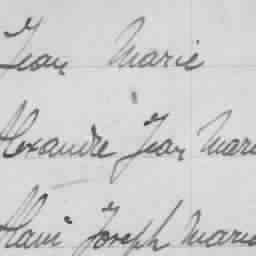 Jean Marie
Alexandre Jean Marie
Alain Joseph Marie